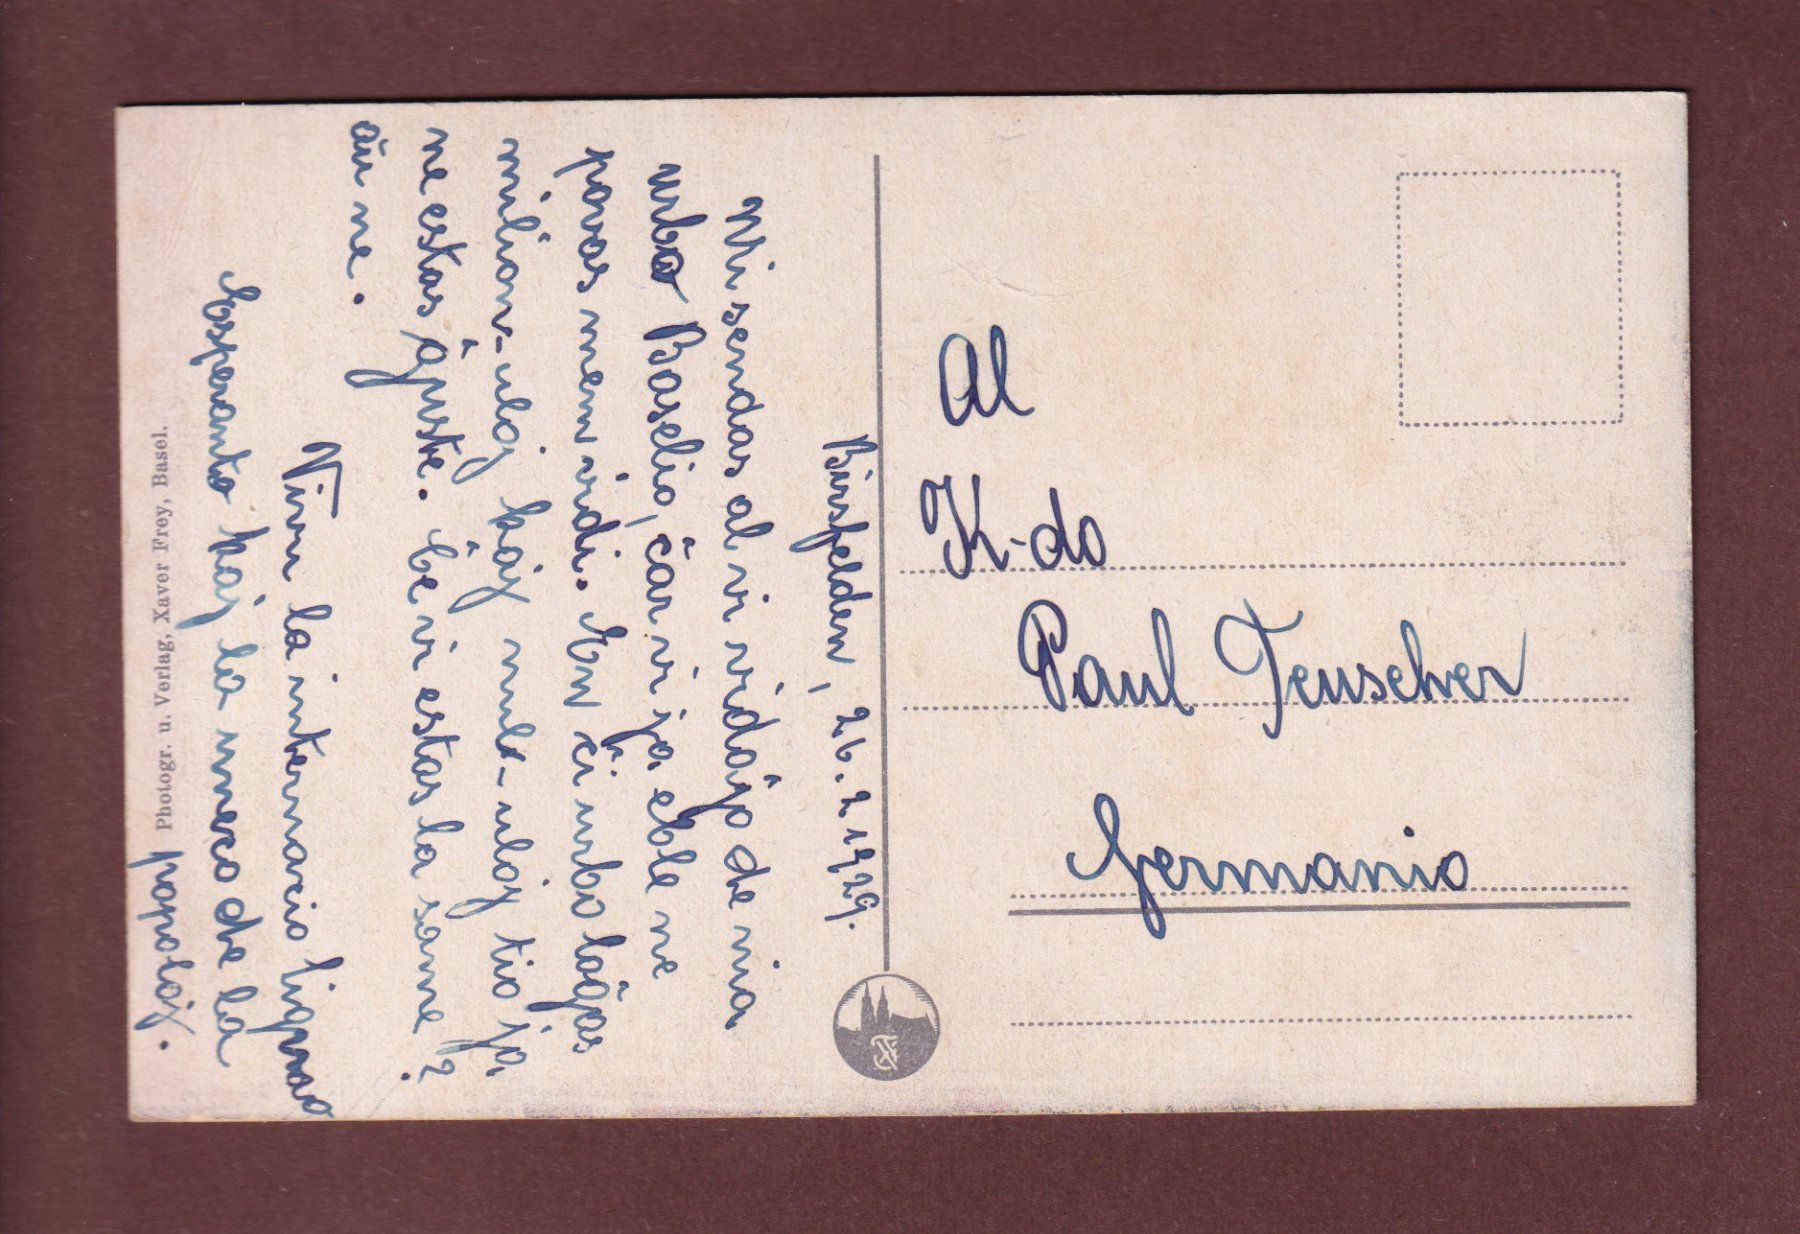 Birsfelden, 26. 2 1929.
Mi sendas al vi vidaĵo de nia
urbo Baselio, ĉar vi ja eble ne
povas mem vidi. En ĉi urbo loĝas
milion-uloj kaj nul-uloj tio ja
ne estas ĝuste. Ĉe vi estas la same?
aŭ ne.
Vivu la internacio lignao
Esperanto kaj la uneco de la
popoloj.
Photogr. u. Verlag, Xaver Frey, Basel.
Al
K-do
Paul Teuscher
Germanio